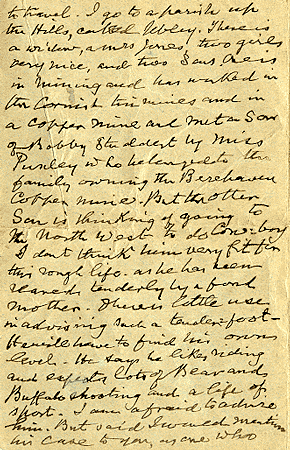 to travel. I go to a parish up
the Hills, called Ubley. There is
a widow, a Mrs Jones, two girls
very nice, and two Sons. One is
in mining and has worked in
the Cornish tin mines and in
a copper mine and met a Son
of Bobby Studdert by Miss
Puxley who belonged to the
family owning the Berehaven
Copper mine. But the other
Son is thinking of going to
the North West to do Cow-boy
I don't think him very fit for
this rough life. as he has been
reared tenderly by a fond
mother. There is little use
in advising such a tender-foot-
He will have to find his own
level. He says he likes riding
and expects lots of Bear and
Buffalo shooting and a life of
sport. I am afraid to advise
him. But said I would mention
his case to you, as one who